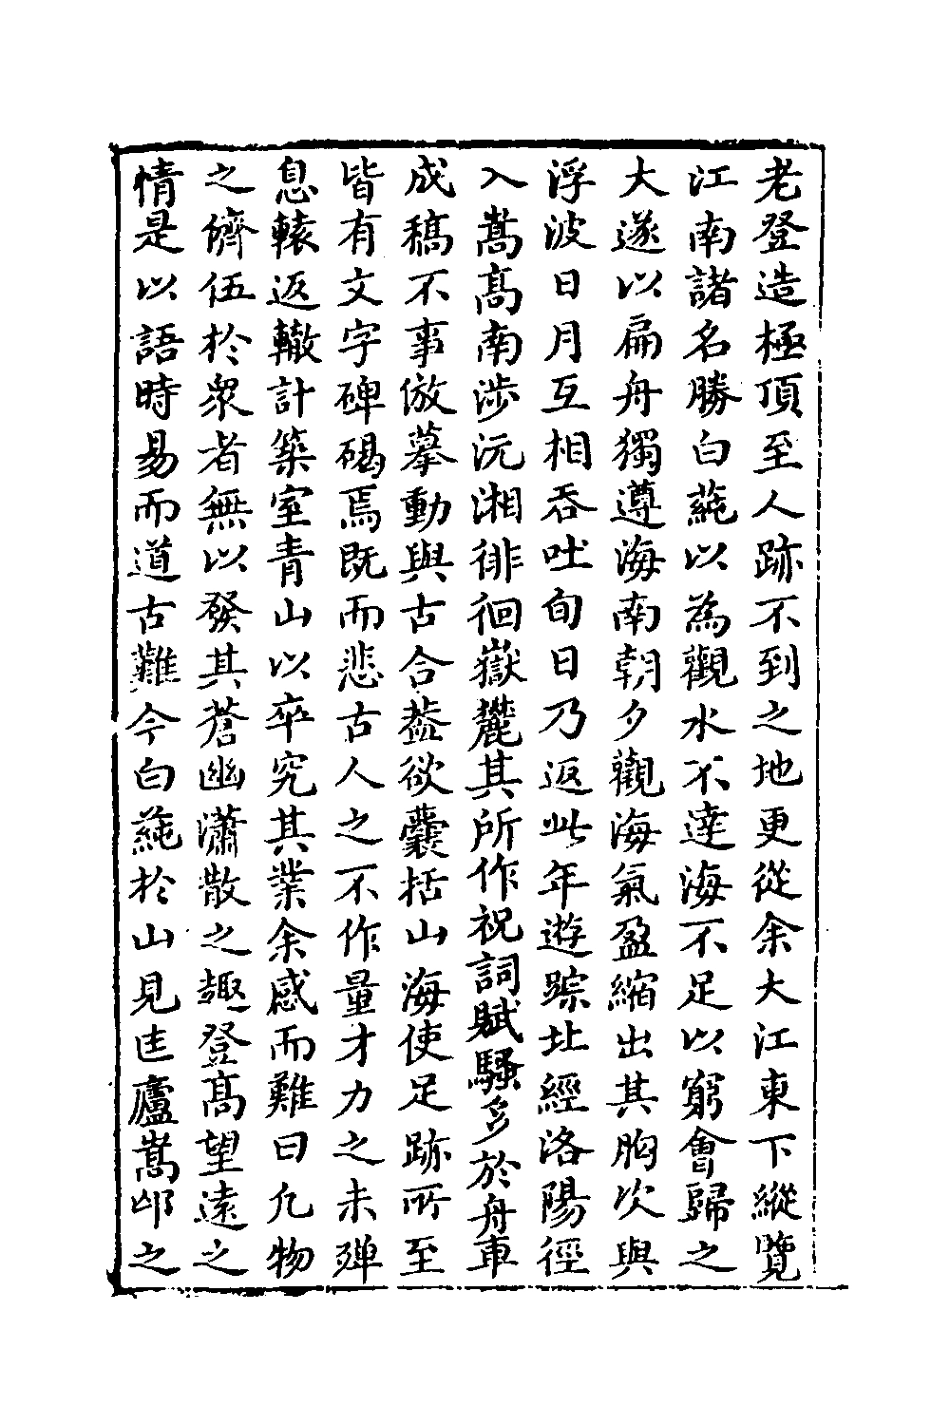 老登造極頂至人跡不到之地更從余大江東下縱覽
江南諸名勝白蒓以為觀水不達海不足以窮會歸之
大遂以扁舟獨遵海南朝夕觀海氣盈縮出其胸次與
浮波日月互相吞吐旬日乃返此年遊踪北經洛陽徑
入嵩高南涉沅湘徘徊嶽麓其所作祝詞賦騷多於舟車
成稿不事倣摹動與古合葢欲囊括山海使足跡所至
皆有文字碑碣焉既而悲古人之不作量才力之未殫
息轅返轍計築室青山以卒究其業余感而難曰凡物
之儕伍於衆者無以發其蒼幽瀟散之趣登高望遠之
情是以語時易而道古難今白蒓於山見匡廬嵩邙之